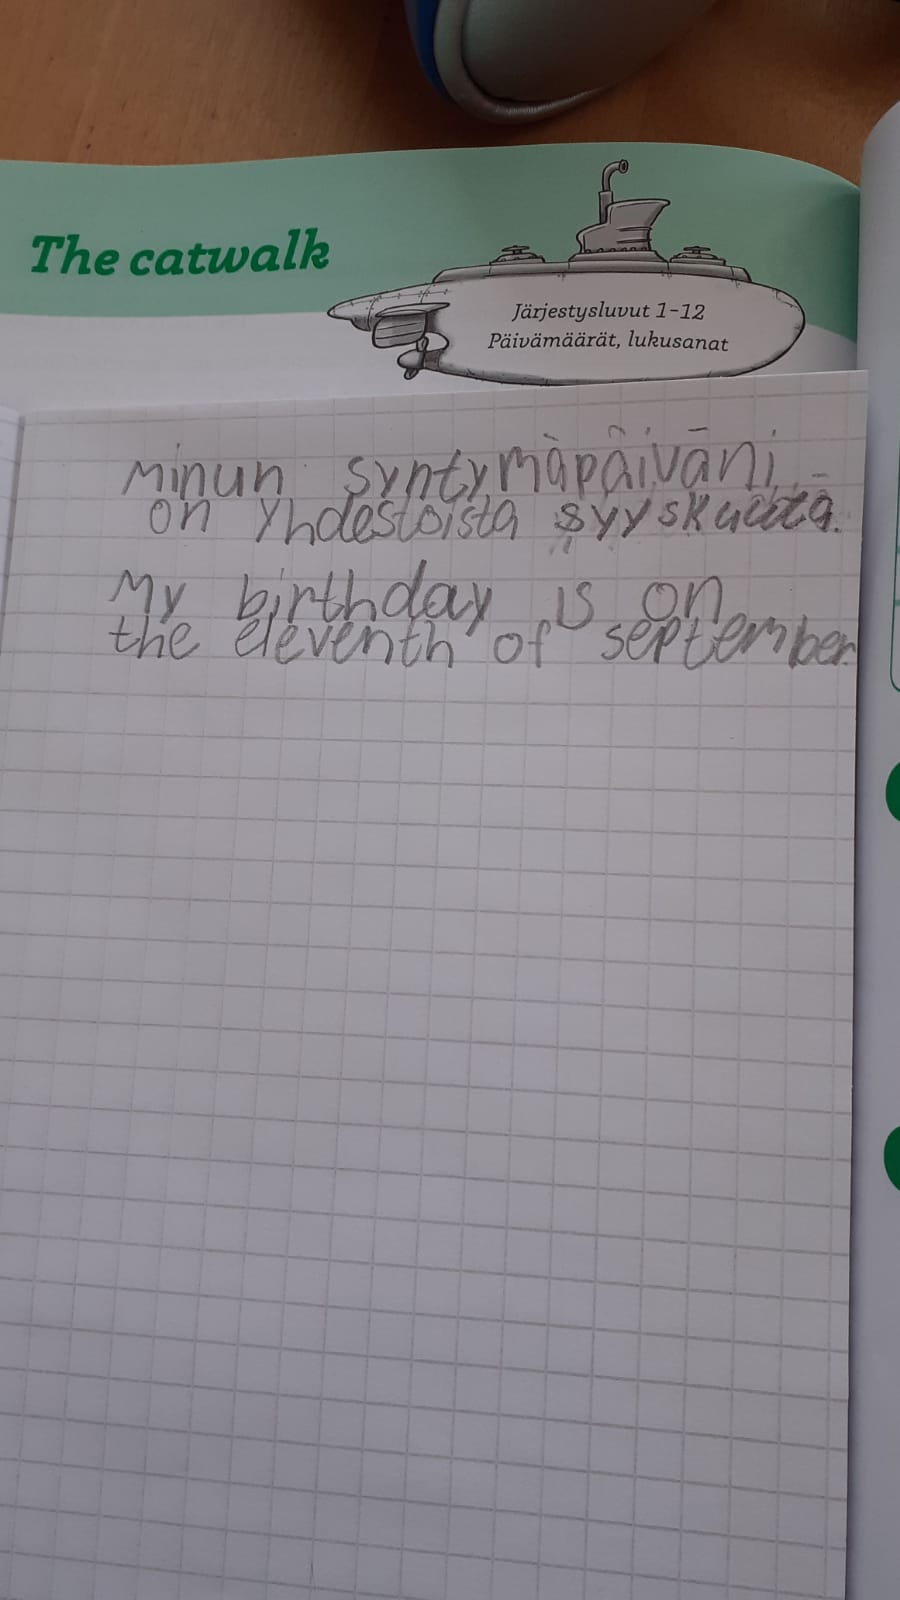 The catwalk
Järjestysluvut 1-12
Päivämäärät, lukusanat
Minun syntymäpäiväni
on yhdestoista syyskuuta.
My birthday is on
the eleventh of september.